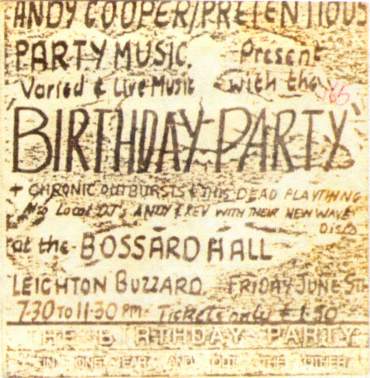 ANDY COOPER/PRETENTIOUS
PARTY MUSIC. Present
Varied & Live Music with the
'BIRTHDAY PARTY'
+ CHRONIC OUTBURSTS & THIS DEAD PLAYTHING
Local DJ's ANDY & KEV WITH THEIR NEW WAVE
DISCO
at the BOSSARD HALL
LEIGHTON BUZZARD FRIDAY JUNE 5TH
7.30 TO 11.30 PM. Tickets only £1.50
THE BIRTHDAY PARTY
IN ONE YEAR AND OUT THE OTHER